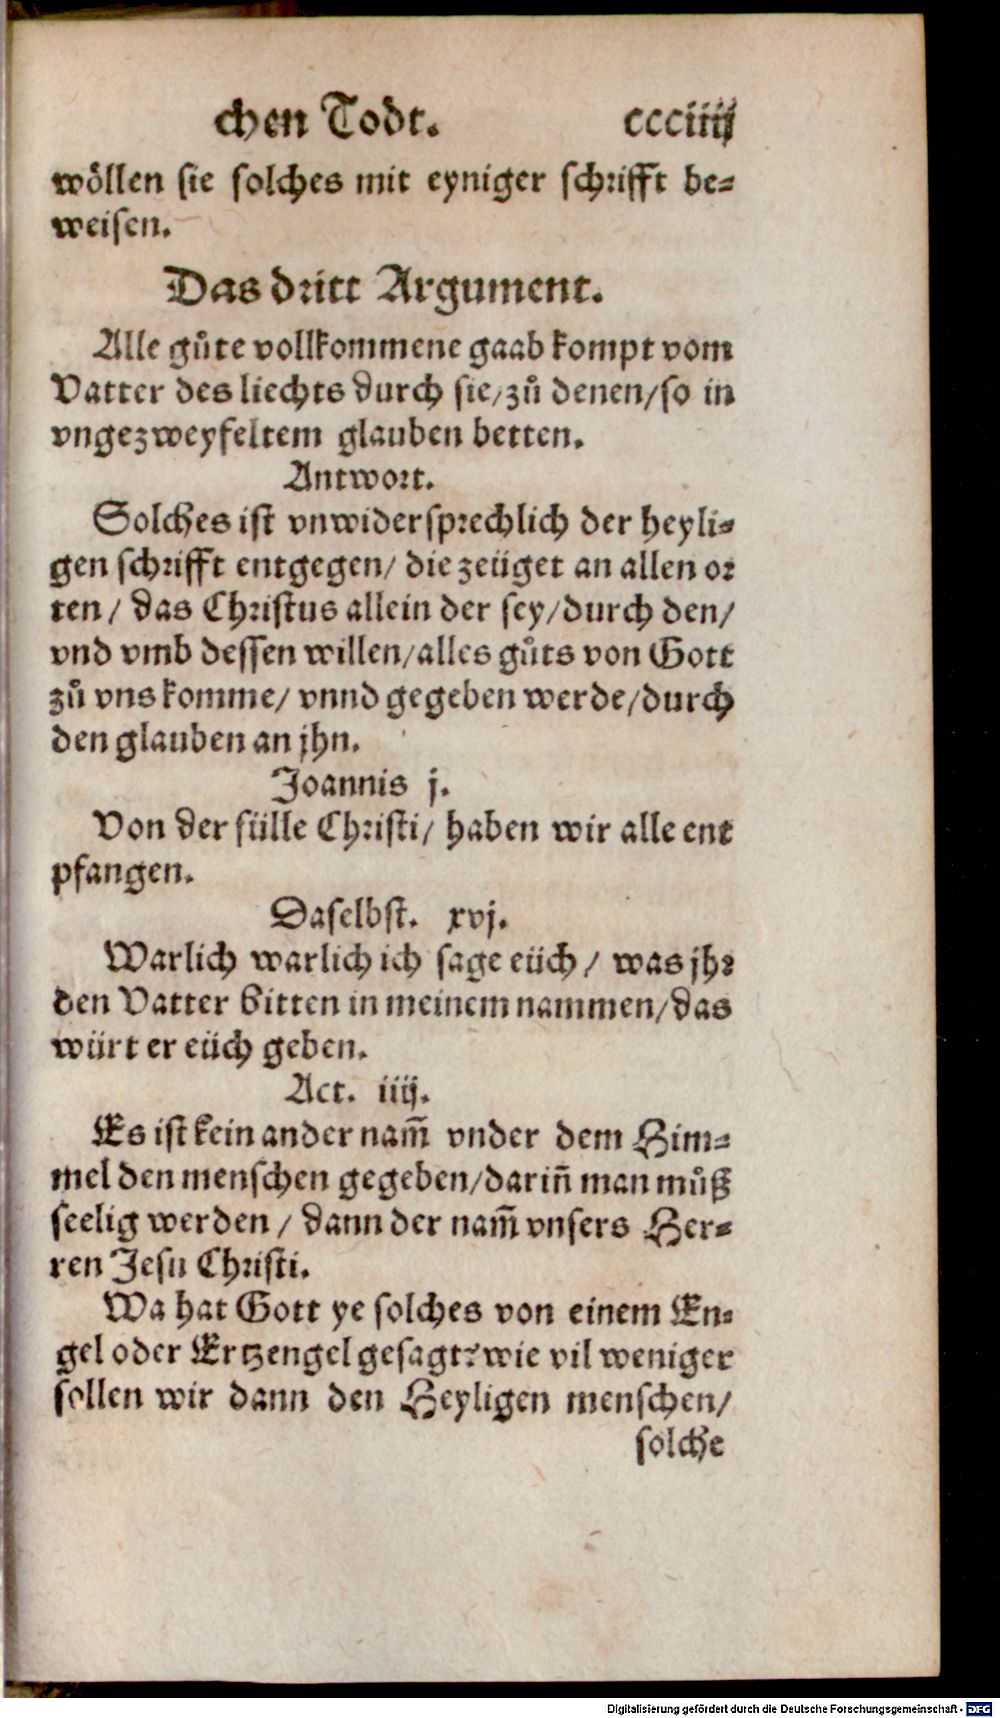 chen Todt. ccciiij
wöllen sie solches mit eyniger schrifft be⸗
weisen.
Das dritt Argument.
Alle gůte vollkommene gaab kompt vom
Vatter des liechts durch sie/zů denen/so in
vngezweyfeltem glauben betten.
Antwort.
Solches ist vnwidersprechlich der heyli⸗
gen schrifft entgegen/ die zeüget an allen or
ten/ das Christus allein der sey/durch den/
vnd vmb dessen willen/alles gůts von Gott
zů vns komme/ vnnd gegeben werde/durch
den glauben an jhn.
Joannis j.
Von der fülle Christi/ haben wir alle ent
pfangen.
Daselbst. xvj.
Warlich warlich ich sage eüch/ was jhr
den Vatter bitten in meinem nammen/das
würt er eüch geben.
Act. iiij.
Es ist kein ander nam̃ vnder dem Him⸗
mel den menschen gegeben/dariñ man můß
seelig werden/ dann der nam̃ vnsers Her⸗
ren Jesu Christi.
Wa hat Gott ye solches von einem En⸗
gel oder Ertzengel gesagt? wie vil weniger
sollen wir dann den Heyligen menschen/
solche
Digitalisierung gefördert durch die Deutsche Forschungsgemeinschaft - DFG